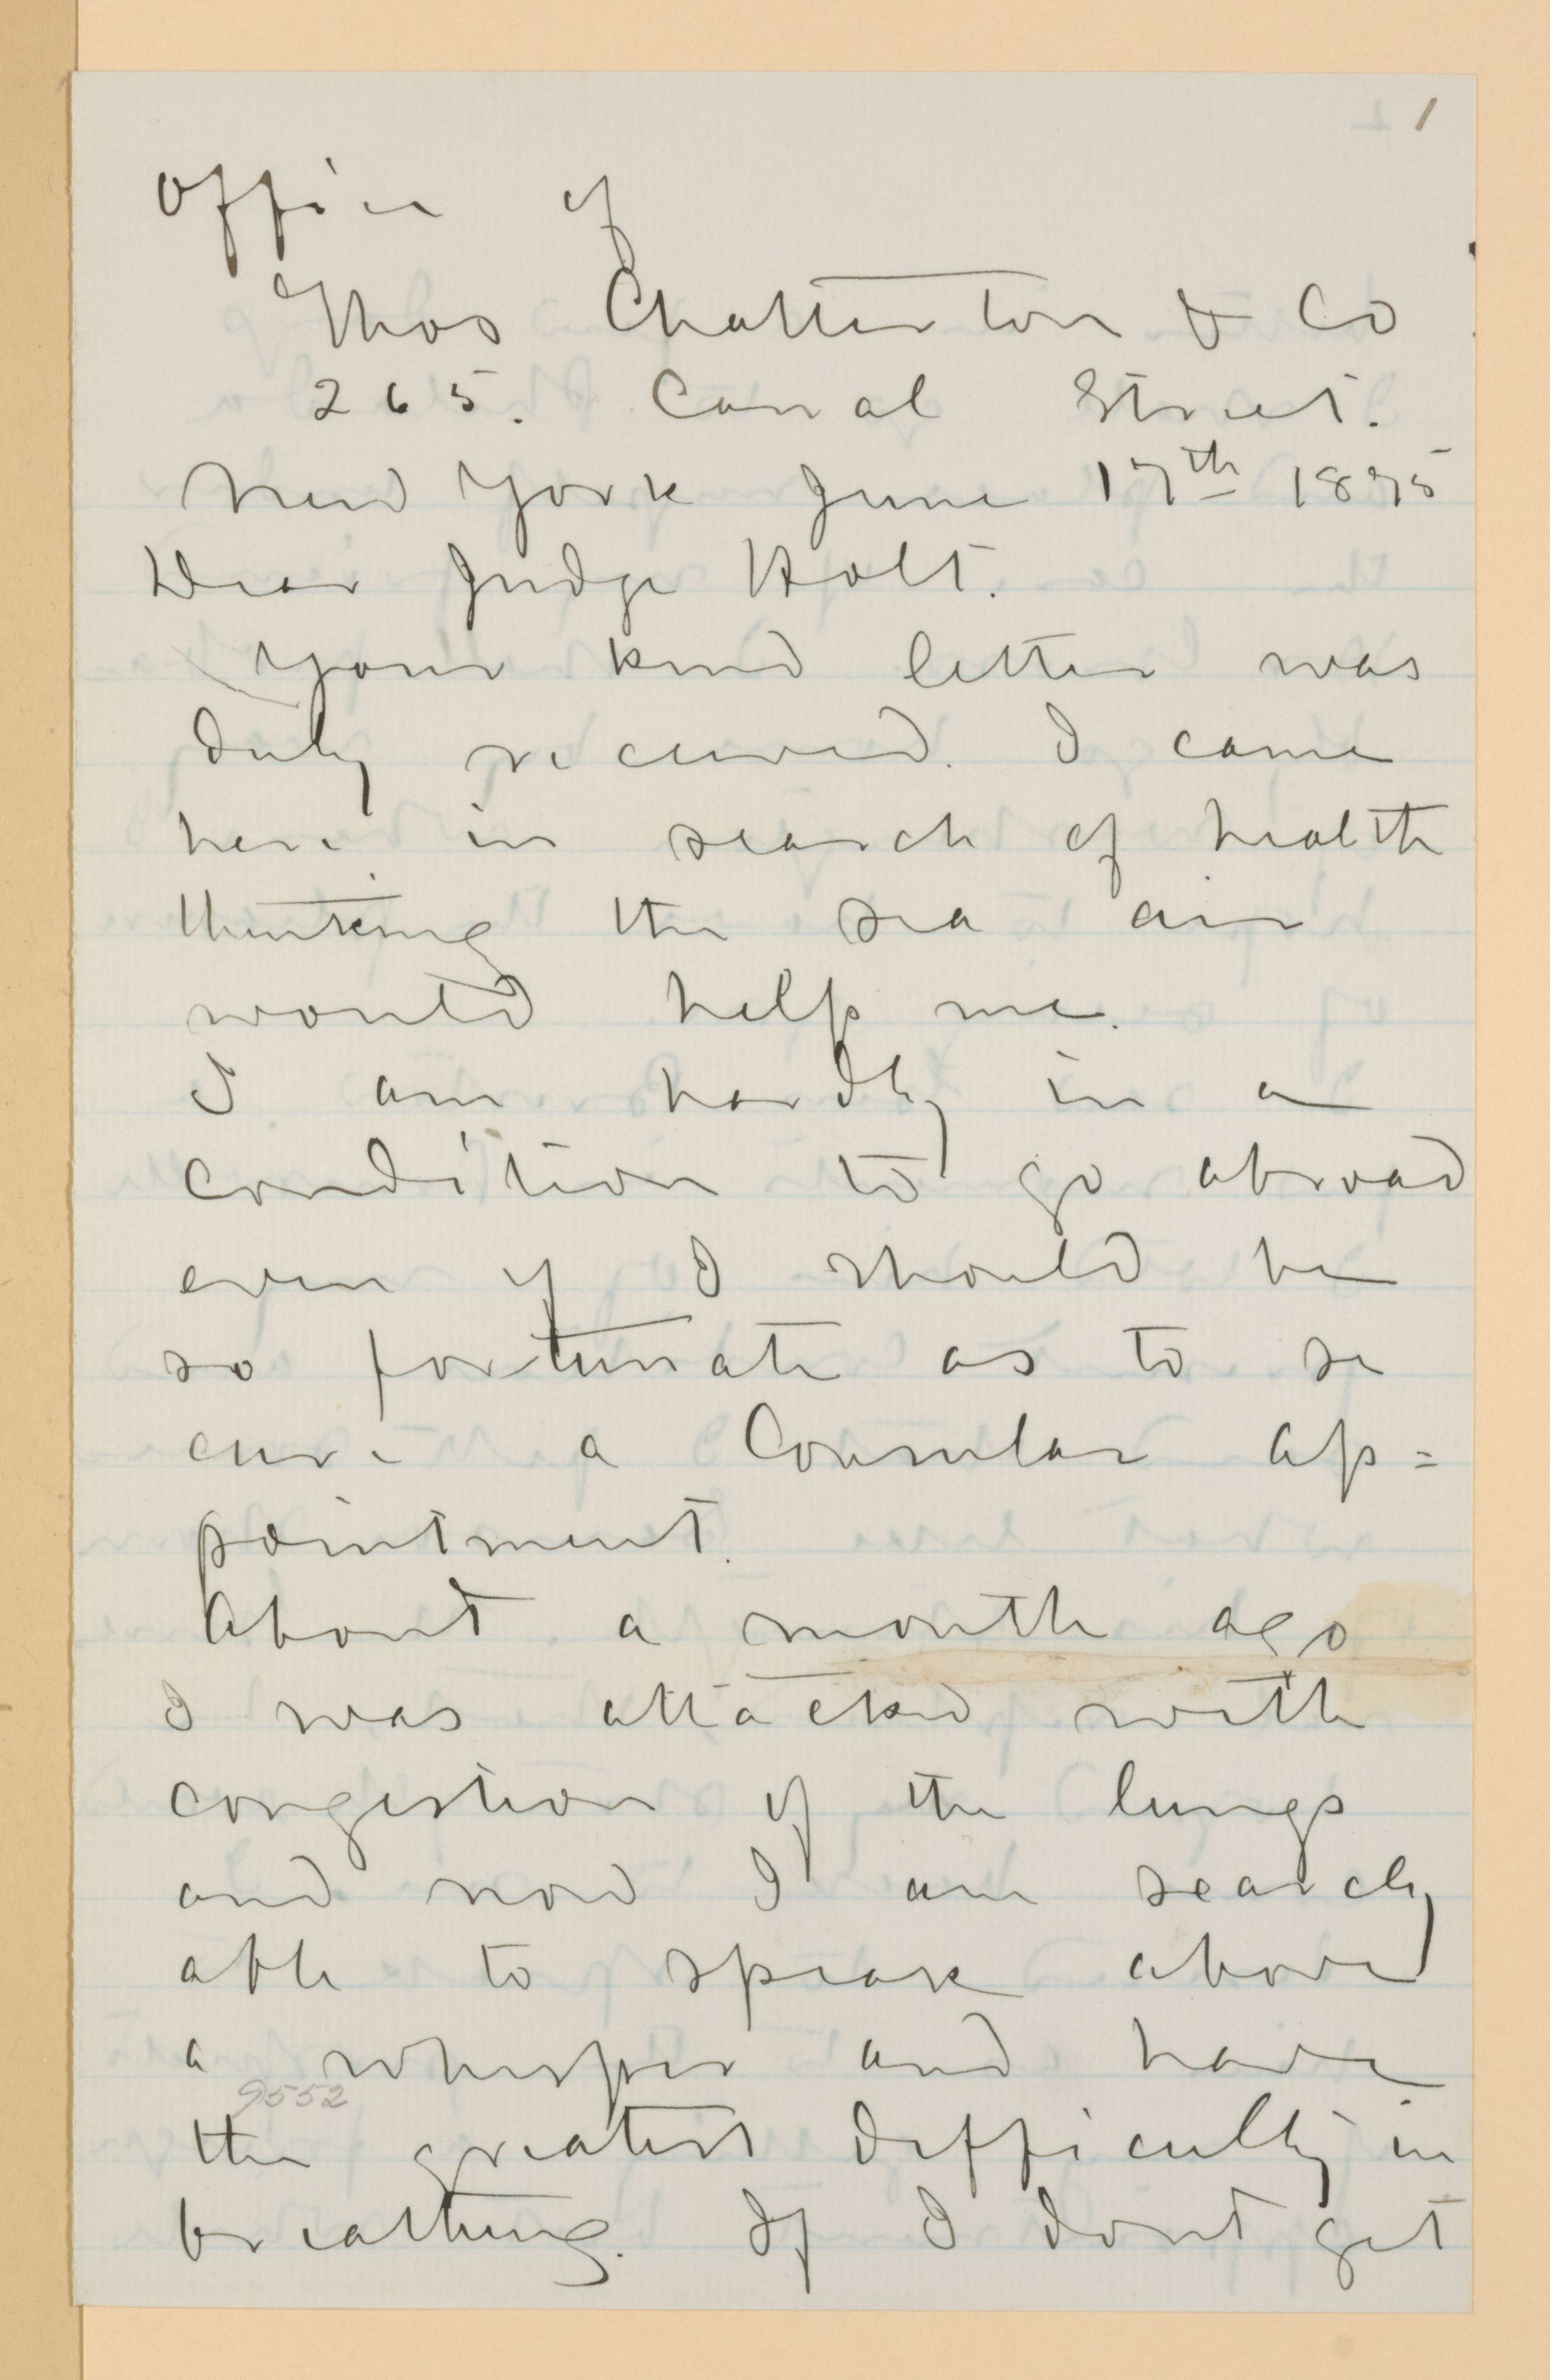 1
Office of
Thos Chatterton & Co
265. Canal Street.
New York June 17th 1875
Dear Judge Holt.
Your kind letter was
duly received. I came
here in search of health
thinking the sea air
would help me.
I am hardly in a
condition to go abroad
even if I should be
so fortunate as to se
cure a Consular ap=
pointment.
About a month ago
I was attacked with
congestion of the lungs
and now I am searcly
able to speak above
a whisper and have
9552
the greatest difficulty in
breathing. If I dont get